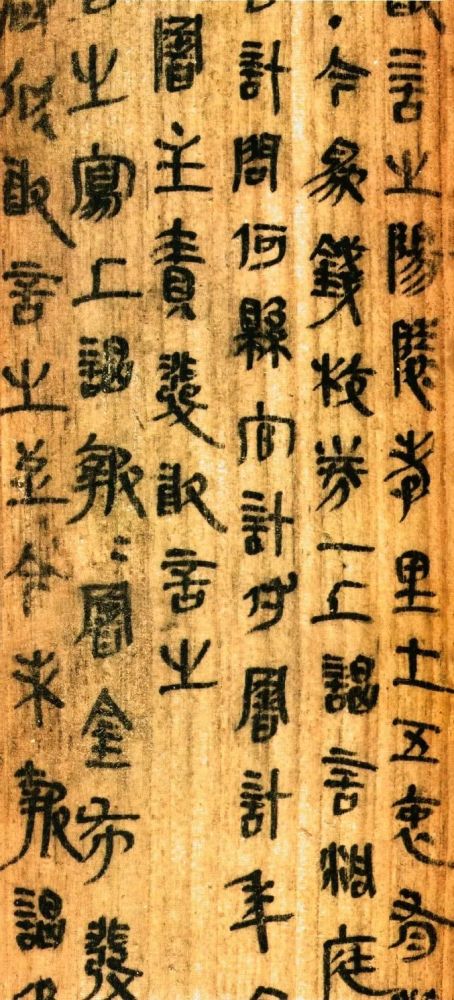 敢言之陽陵孝里士五衷有
·今為錢校券一上謁言洞庭
計問何縣官計付署計年
署主責發敢言之
言之寫上謁報=署金布發
敢言之至今未報謁